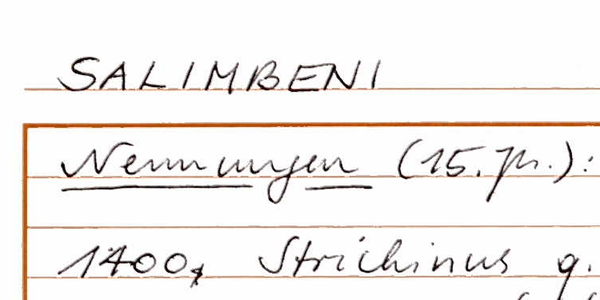 SALIMBENI
Nennungen (15. Jh.):
1400, Strichinus q.